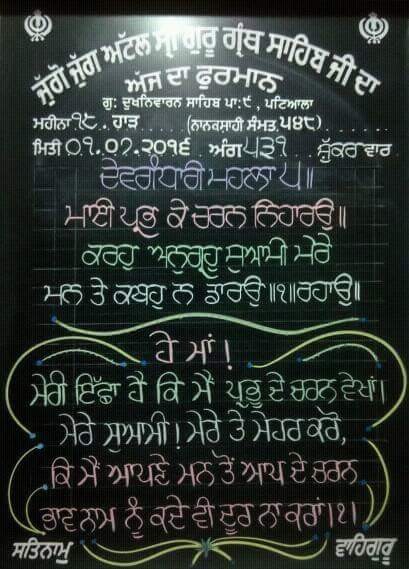 ਜੁੱਗੋ ਜੁੱਗ ਅਟੱਲ ਸ੍ਰੀ ਗੁਰੂ ਗ੍ਰੰਥ ਸਾਹਿਬ ਜੀ ਦਾ
ਅੱਜ ਦਾ ਫੁਰਮਾਨ
ਗੁ: ਦੁਖਨਿਵਾਰਨ ਸਾਹਿਬ ਪਾ: ੯, ਪਟਿਆਲਾ
ਮਹੀਨਾ ੧੮.. ਹਾੜ.... (ਨਾਨਕਸਾਹੀ ਸੰਮਤ. ੫੪੮)....
ਮਿਤੀ 0੧.0੭.੨0੧੬ . ਅੰਗ ੫੩੧ ਸ਼ੁੱਕਰਵਾਰ
ਦੇਵਗੰਧਾਰੀ ਮਹਲਾ ੫॥
ਮਾਈ ਪ੍ਰਭ ਕੇ ਚਰਨ ਨਿਹਾਰਉ॥
ਕਰਹੁ ਅਨੁਗ੍ਰਹੁ ਸੁਆਮੀ ਮੇਰੇ
ਮਨ ਤੇ ਕਬਹੁ ਨ ਡਾਰਉ॥੧॥ਰਹਾਉ॥
ਹੇ ਮਾਂ !
ਮੇਰੀ ਇੱਛਾ ਹੈ ਕਿ ਮੈਂ ਪ੍ਰਭੂ ਦੇ ਚਰਨ ਵੇਖਾਂ।
ਮੇਰੇ ਸੁਆਮੀ ! ਮੇਰੇ ਤੇ ਮੇਹਰ ਕਰੋ,
ਕਿ ਮੈਂ ਆਪਣੇ ਮਨ ਤੋਂ ਆਪ ਦੇ ਚਰਨ
ਭਾਵ ਨਾਮ ਨੂੰ ਕਦੇ ਵੀ ਦੂਰ ਨਾ ਕਰਾਂ।੧।
ਸਤਿਨਾਮੁ ਵਾਹਿਗੁਰੂ